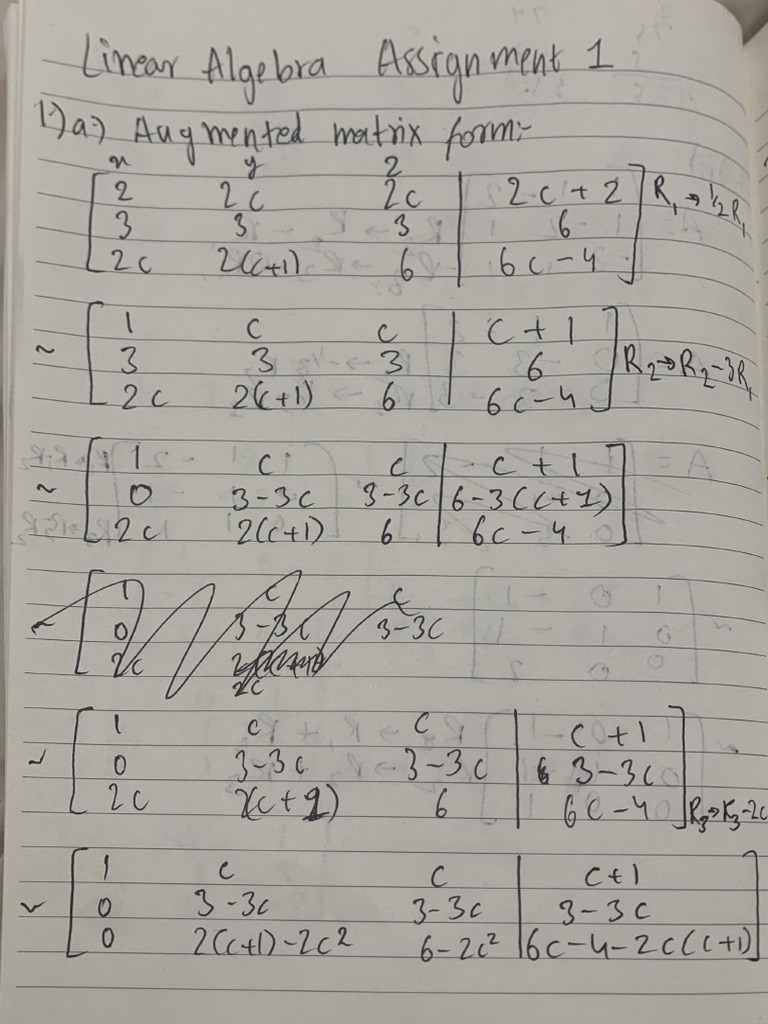 Linear Algebra Assignment 1
1.) a.) Augmented matrix form:-
x y z
2 2c 2c | 2c + 2 R₁ → ½R₁
3 3 3 | 6
2c 2(c+1) 6 | 6c - 4
~ 1 c c | c + 1
3 3 3 | 6 R₂ → R₂ - 3R₁
2c 2(c+1) 6 | 6c - 4
~ 1 c c | c + 1
0 3-3c 3-3c | 6-3(c+1)
2c 2(c+1) 6 | 6c - 4
~ 1 c c
0 3-3c 3-3c
2c
2c
~ 1 c c | c + 1
0 3-3c 3-3c | 3-3c
2c 2(c+1) 6 | 6c - 4 R₃ → R₃ - 2c
~ 1 c c | c + 1
0 3-3c 3-3c | 3-3c
0 2(c+1)-2c² 6-2c² | 6c-4-2c(c+1)